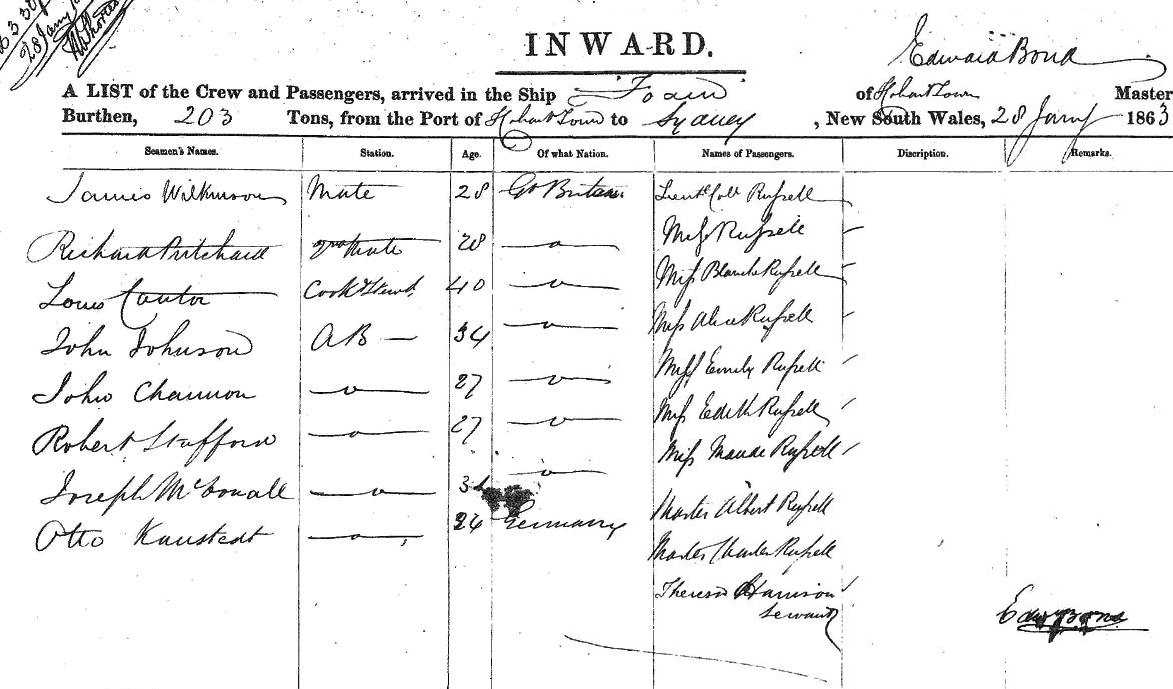 28 Jany
INWARD.
Edward Bond
A LIST of the Crew and Passengers, arrived in the Ship of Hobart Town Master
Burthen, 203 Tons, from the Port of Hobart Town to Sydney, New South Wales, 28 Jany 1863
Seamen's Names. Station. Age. Of what Nation. Names of Passengers. Discription. Remarks.
James Wilkinson Mate 28 Gt Britain. Lieut Coll Russell
Richard Pritchard 2nd Mate 28 —o— Mrs Russell
Louis Cantor Cook & Stewd. 40 —o— Miss Blanche Russell
John Johnson AB — 34 —o— Miss Alice Russell
John Channon —o— 27 —o— Miss Emily Russell
Robert Stafford —o— 27 —o— Miss Edith Russell
Joseph McDonall —o— —o— Miss Maude Russell
Otto Kaustedt —o— 24 Germany Master Albert Russell
Master Charles Russell
Theresa Harrison
Servant
Edwd Bond